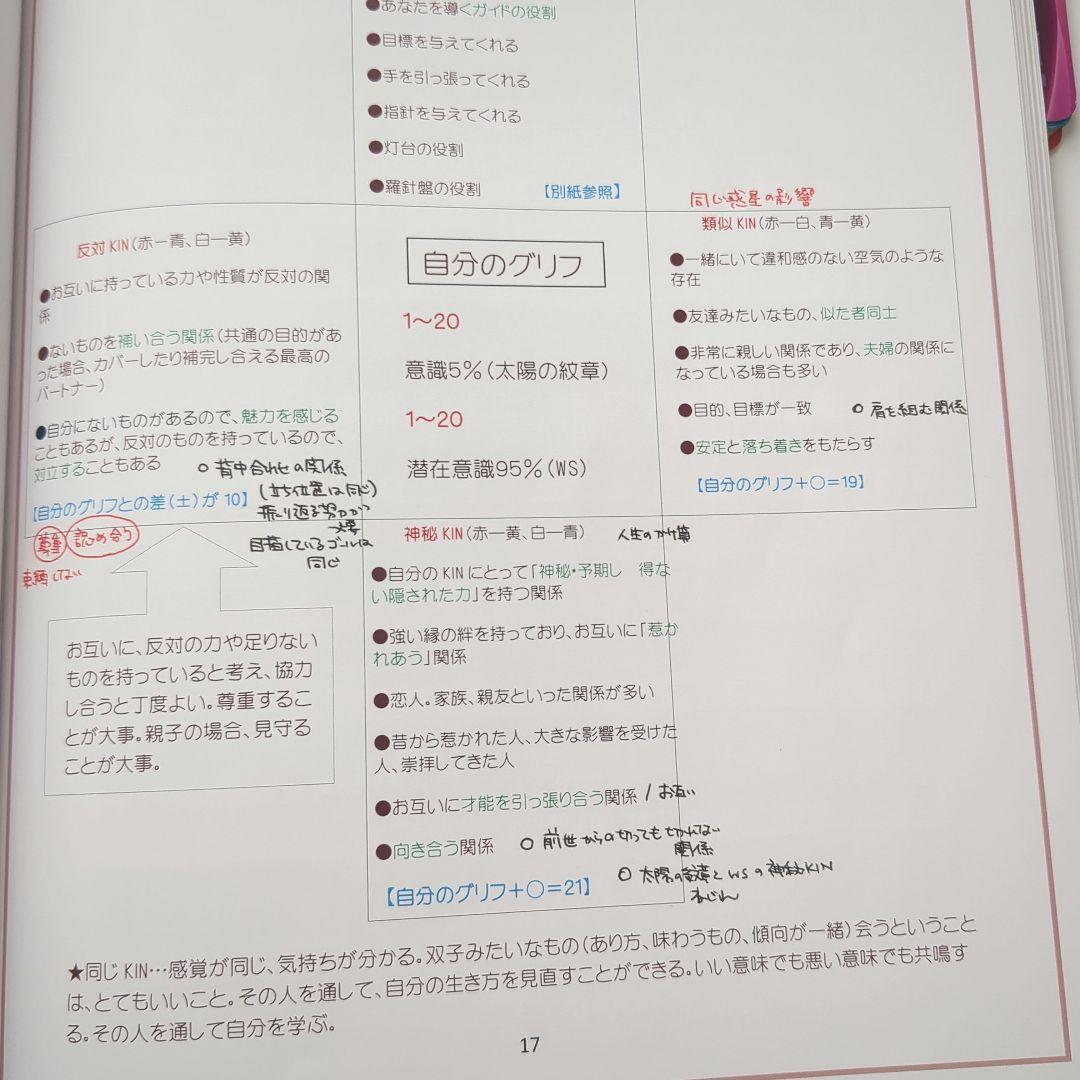 ●あなたを導くガイドの役割
●目標を与えてくれる
●手を引っ張ってくれる
●指針を与えてくれる
●灯台の役割
●羅針盤の役割 【別紙参照】
反対 KIN(赤ー青、白ー黄)
●お互いに持っている力や性質が反対の関
係
●ないものを補い合う関係(共通の目的があ
った場合、カバーしたり補完し合える最高の
パートナー)
●自分にないものがあるので、魅力を感じる
こともあるが、反対のものを持っているので、
対立することもある
○背中合わせの関係
(立ち位置は同じ)
振り返る努力が
大事
目指しているゴールは
同じ
【自分のグリフとの差(±)が 10】
尊重 認め合う
束縛しない
お互いに、反対の力や足りない
ものを持っていると考え、協力
し合うと丁度よい。尊重するこ
とが大事。親子の場合、見守る
ことが大事。
自分のグリフ
1～20
意識5%(太陽の紋章)
1～20
潜在意識95%(WS)
同じ惑星の影響
類似 KIN(赤ー白、青ー黄)
●一緒にいて違和感のない空気のような
存在
●友達みたいなもの、似た者同士
●非常に親しい関係であり、夫婦の関係に
なっている場合も多い
●目的、目標が一致 ○肩を組む関係
●安定と落ち着きをもたらす
【自分のグリフ+○=19】
神秘 KIN(赤ー黄、白ー青) 人生のかけ算
●自分の KIN にとって「神秘・予期し 得な
い隠された力」を持つ関係
●強い縁の絆を持っており、お互いに「惹か
れあう」関係
●恋人。家族、親友といった関係が多い
●昔から惹かれた人、大きな影響を受けた
人、崇拝してきた人
●お互いに才能を引っ張り合う関係 / お互い
●向き合う関係 ○前世からの切っても切れない
関係
【自分のグリフ+○=21】 ○太陽の紋章とWSの神秘KIN
★同じ KIN…感覚が同じ、気持ちが分かる。双子みたいなもの(あり方、味わうもの、傾向が一緒)会うということ
は、とてもいいこと。その人を通して、自分の生き方を見直すことができる。いい意味でも悪い意味でも共鳴す
る。その人を通して自分を学ぶ。
17